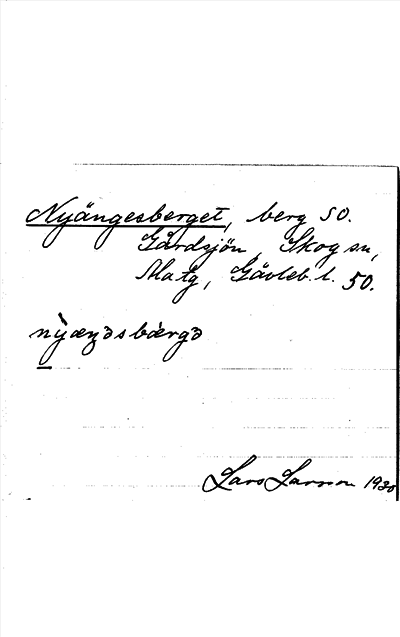 Nyängesberget, berg SO.
Gårdsjön, Skog sn,
Ala tg, Gävleb. l. 50.
nỳæŋəsbærgə
Lars Larsson 1930